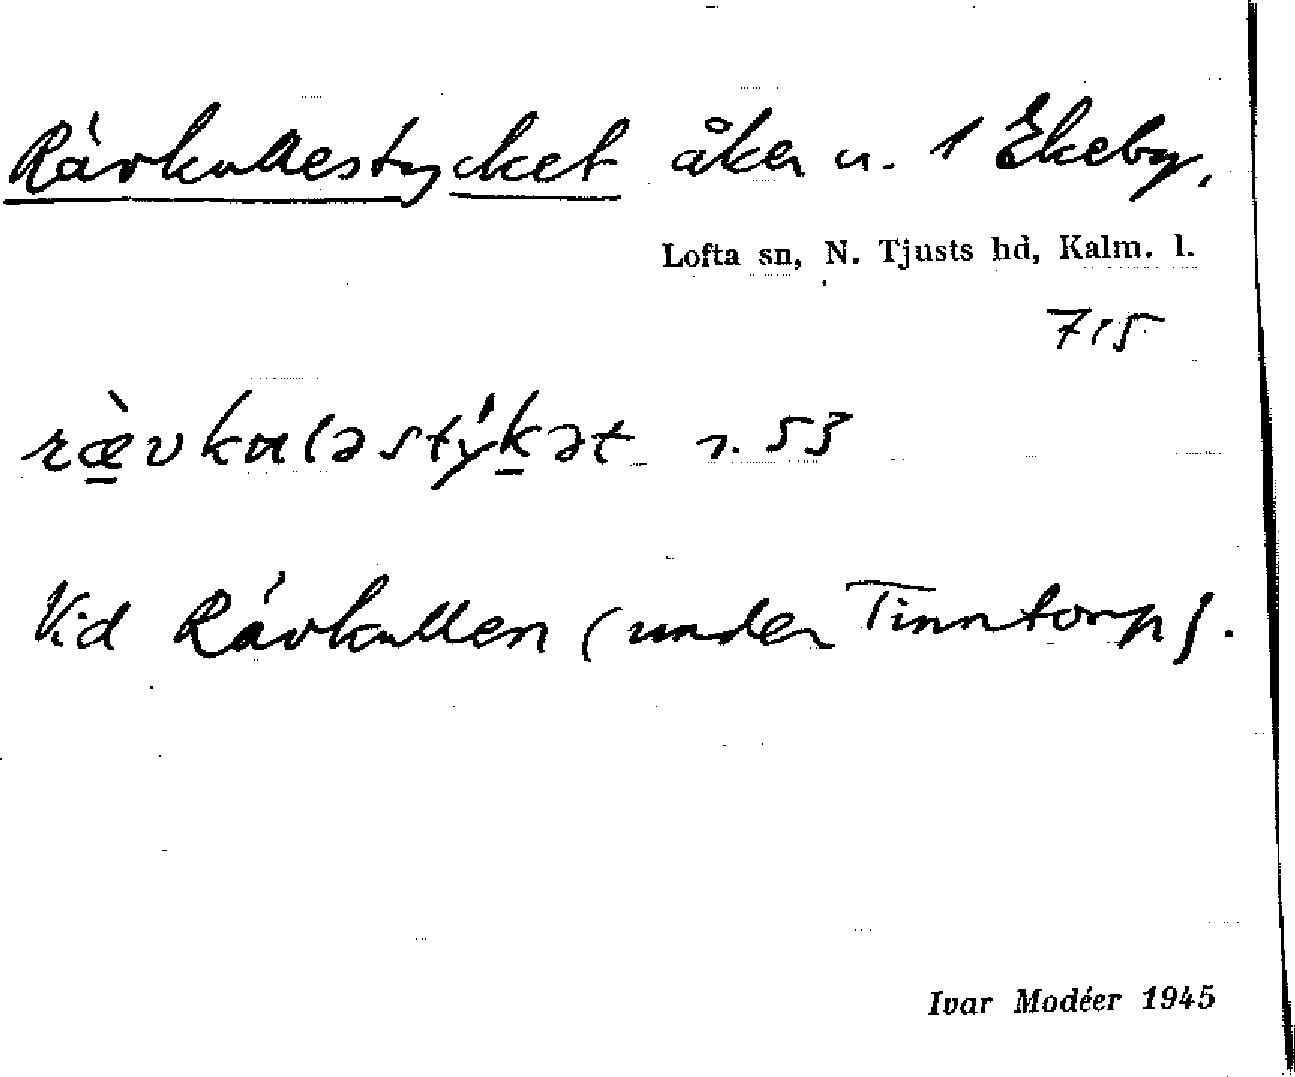 Rävkullestycket åker u. 1 Ekeby,
Lofta sn, N. Tjusts hd, Kalm. l.
715
ræ̀vkuləstýkət n. 53
Vid Rävkullen (under Tinntorp).
Ivar Modéer 1945